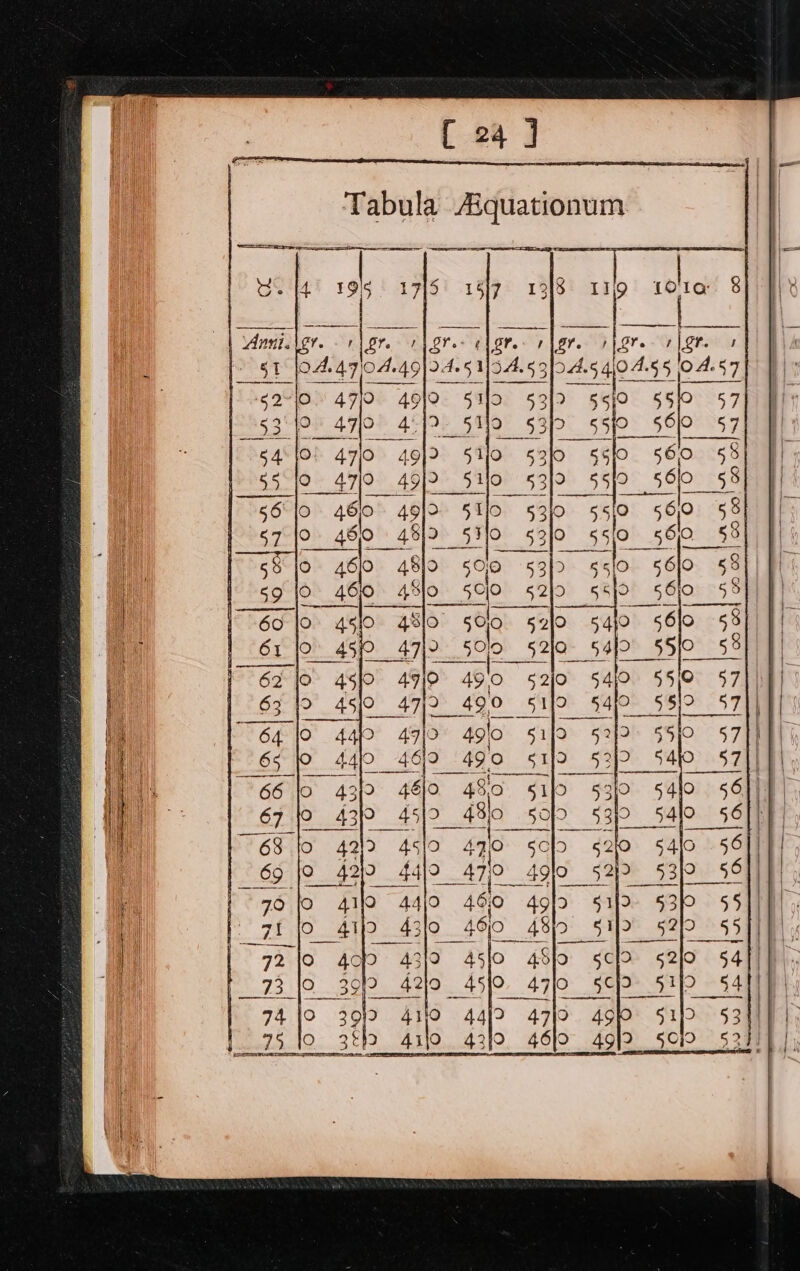 [ 24 ]
Tabula Æquationum
♉. 4 19 5 17 6 15 7 13 8 11 9 10 10 8
Anni. gr. ′ gr. ′ gr. ′ gr. ′ gr. ′ gr. ′ gr. ′
51 0 A. 47 0 A. 49 0 A. 51 0 A. 53 0 A. 54 0 A. 55 0 A. 57
52 0 47 0 49 0 51 0 53 0 55 0 55 0 57
53 0 47 0 4 0 51 0 53 0 55 0 56 0 57
54 0 47 0 49 0 51 0 53 0 55 0 56 0 58
55 0 47 0 49 0 51 0 53 0 55 0 56 0 58
56 0 46 0 49 0 51 0 53 0 55 0 56 0 58
57 0 46 0 48 0 51 0 53 0 55 0 56 0 58
58 0 46 0 48 0 50 0 53 0 55 0 56 0 58
59 0 46 0 48 0 50 0 52 0 55 0 56 0 58
60 0 45 0 48 0 50 0 52 0 54 0 56 0 58
61 0 45 0 47 0 50 0 52 0 54 0 55 0 58
62 0 45 0 47 0 49 0 52 0 54 0 55 0 57
63 0 45 0 47 0 49 0 51 0 54 0 55 0 57
64 0 44 0 47 0 49 0 51 0 53 0 55 0 57
65 0 44 0 46 0 49 0 51 0 53 0 54 0 57
66 0 43 0 46 0 48 0 51 0 53 0 54 0 56
67 0 43 0 45 0 48 0 50 0 53 0 54 0 56
68 0 42 0 45 0 47 0 50 0 52 0 54 0 56
69 0 42 0 44 0 47 0 49 0 52 0 53 0 56
70 0 41 0 44 0 46 0 49 0 51 0 53 0 55
71 0 41 0 43 0 46 0 48 0 51 0 52 0 55
72 0 40 0 43 0 45 0 48 0 50 0 52 0 54
73 0 39 0 42 0 45 0 47 0 50 0 51 0 54
74 0 39 0 41 0 44 0 47 0 49 0 51 0 53
75 0 38 0 41 0 43 0 46 0 49 0 50 0 53